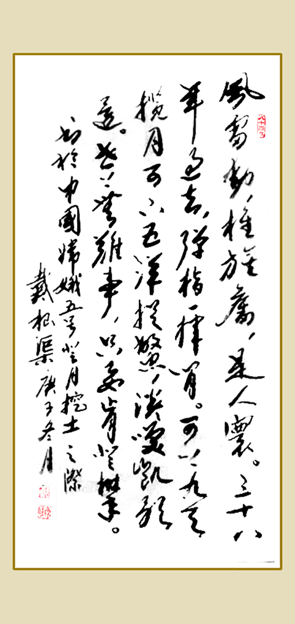 风雷动,旌旗奋,是人寰。三十八
年过去,弹指一挥间。可上九天
揽月可下五洋捉鳖,谈笑凯歌
还。世上无难事,只要肯登攀。
书於中國嫦娥五号登月挖土之際
戴根渠 庚子冬月